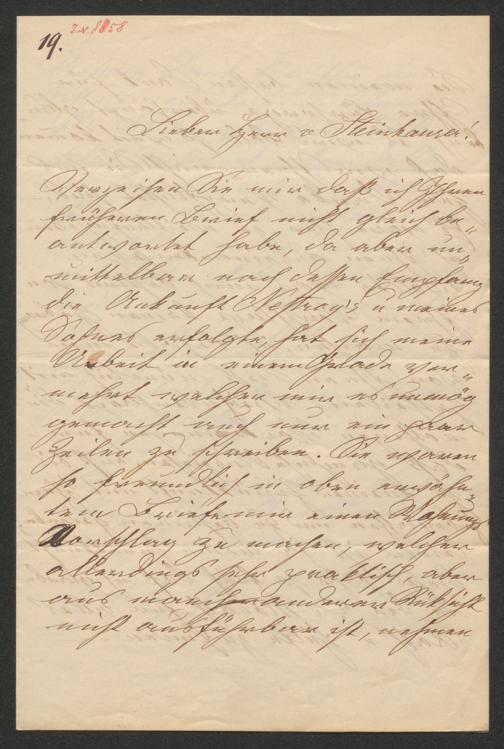 19.
I.N. 8858
Lieber Herr v Steinhauser!
Verzeihen Sie mir daß ich Ihren
früheren Brief nicht gleich be„
antwortet habe, da aber un„
mittelbar nach dessen Empfang
die Ankunft Nestroy's u meines
Sohnes erfolgte, hat sich meine
Arbeit in einem Grade ver„
mehrt welcher mir es unmög
gemacht auch nur ein paar
Zeilen zu schreiben. Sie waren
so freundlich in oben erwähn„
tem Briefe mir einen Wohnungs
Vorschlag zu machen, welcher
allerdings sehr praktisch, aber
aus mancher anderer Rücksicht
nicht ausführbar ist, nehmen